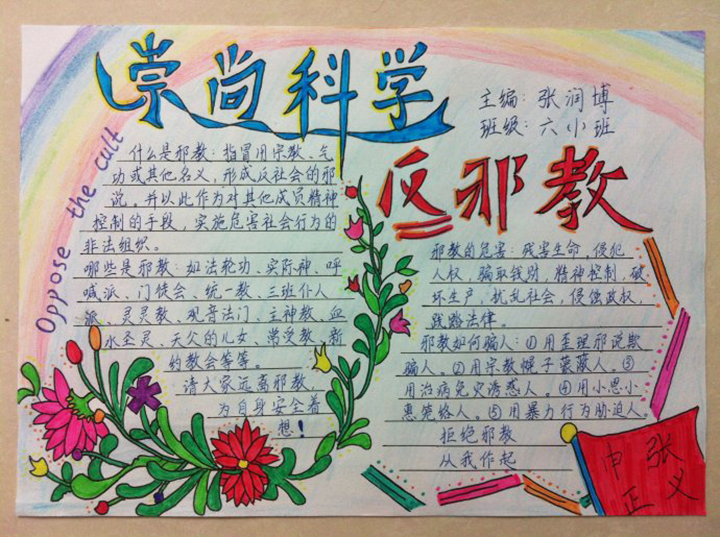 崇尚科学
主编：张润博
班级：六小班
反邪教
Oppose the cult
什么是邪教：指冒用宗教、气
功或其他名义，形成反社会的邪
说，并以此作为对其他成员精神
控制的手段，实施危害社会行为的
非法组织。
哪些是邪教：如法轮功、实际神、呼
喊派、门徒会、统一教、三班仆人
派、灵灵教、观音法门、主神教、血
水圣灵、天父的儿女、常受教、新
的教会等等。
请大家远离邪教，
为自身安全着
想！
邪教的危害：残害生命，侵犯
人权，骗取钱财，精神控制，破
坏生产，扰乱社会，侵蚀政权，
践踏法律。
邪教如何骗人：①用歪理邪说欺
骗人。②用宗教幌子蒙蔽人。③
用治病免灾诱惑人。④用小恩小
惠笼络人。⑤用暴力行为胁迫人。
拒绝邪教
从我作起
申张
正义